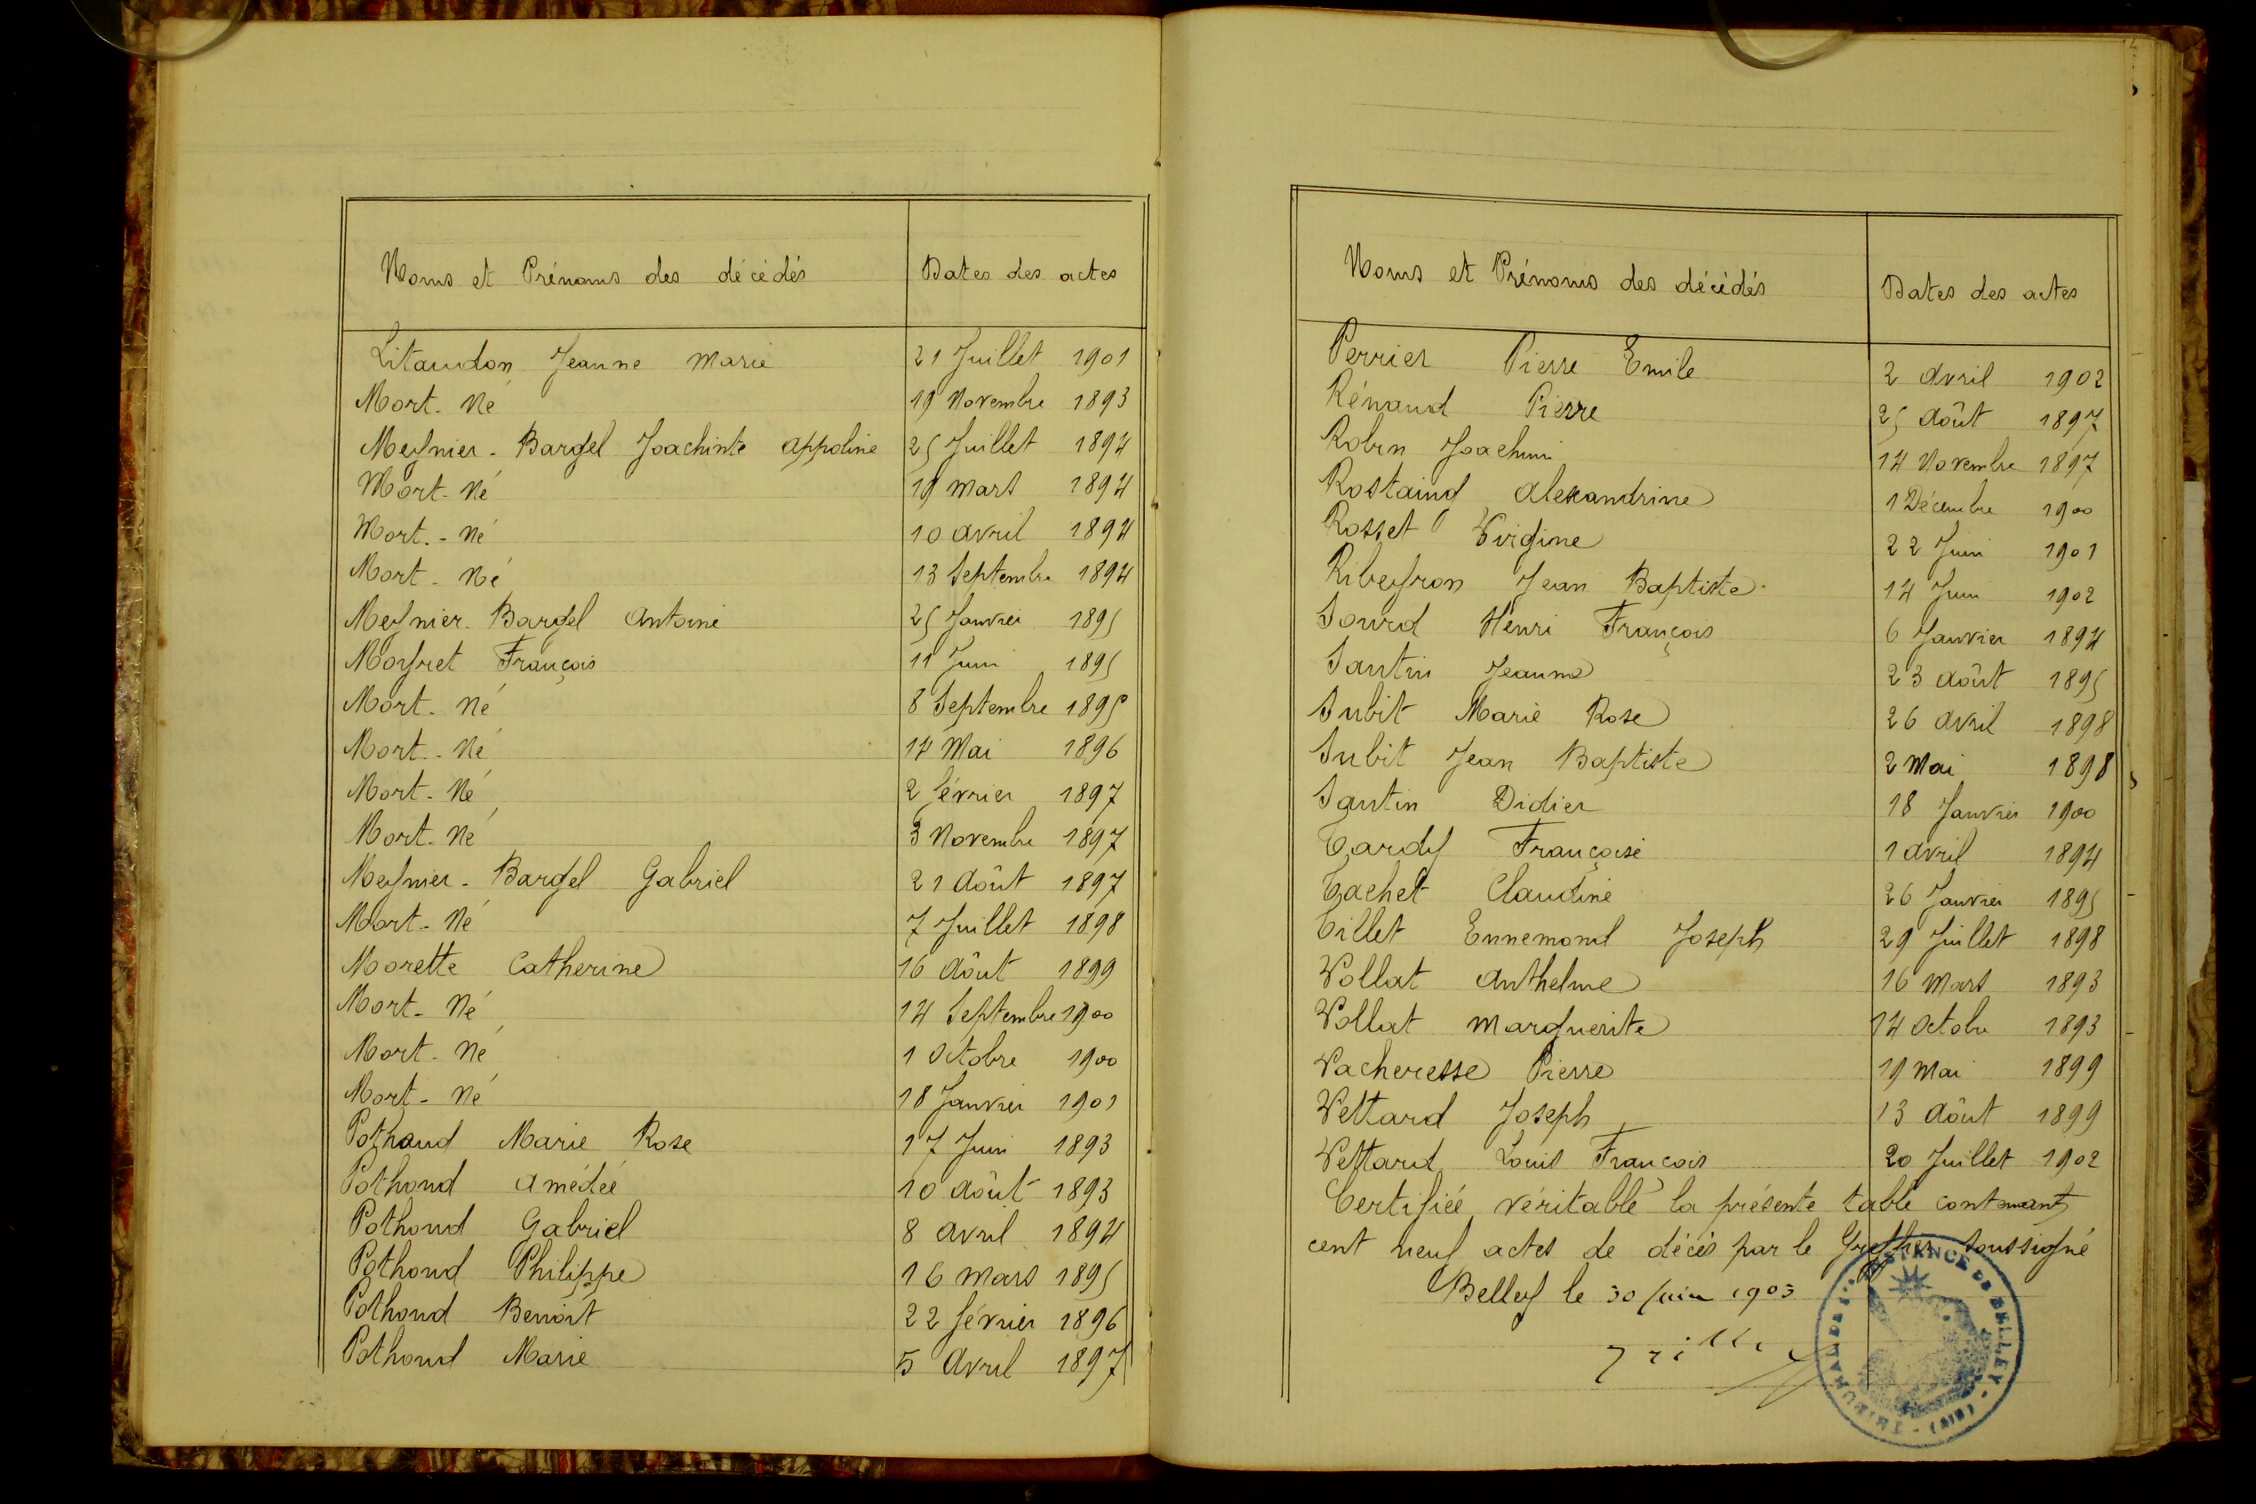 Noms et Prénoms des décédés Dates des actes
Litaudon Jeanne Marie 21 Juillet 1901
Mort-Né 19 Novembre 1893
Meynier-Bargel Joachinte Appoline 25 Juillet 1894
Mort-Né 19 Mars 1894
Mort.-Né 10 Avril 1894
Mort-Né 13 Septembre 1894
Meynier-Bargel Antoine 25 Janvier 1895
Moyret François 11 Juin 1895
Mort-Né 8 Septembre 1895
Mort.-Né 14 Mai 1896
Mort-Né 2 février 1897
Mort-Né 3 Novembre 1897
Meynier-Bargel Gabriel 21 Août 1897
Mort-Né 7 Juillet 1898
Morette Catherine 16 Août 1899
Mort-Né 14 Septembre 1900
Mort-Né 1 Octobre 1900
Mort-Né 18 Janvier 1901
Pothoud Marie Rose 17 Juin 1893
Pothoud Amédée 10 Août 1893
Pothoud Gabriel 8 Avril 1894
Pothoud Philippe 16 Mars 1895
Pothoud Benoit 22 février 1896
Pothoud Marie 5 Avril 1897
Noms et Prénoms des décédés Dates des actes
Perrier Pierre Emile 2 Avril 1902
Rénaud Pierre 25 Août 1897
Robin Joachim 14 Novembre 1897
Rostaing Alexandrine 1 Décembre 1900
Rosset Virginie 22 Juin 1901
Ribeyron Jean Baptiste 14 Juin 1902
Sourd Henri François 6 Janvier 1894
Santin Jeanne 23 Août 1895
Subit Marie Rose 26 Avril 1898
Subit Jean Baptiste 2 Mai 1898
Santin Didier 18 Janvier 1900
Tardy Françoise 1 Avril 1894
Tachet Claudine 26 Janvier 1895
Tillet Ennemond Joseph 29 Juillet 1898
Vollat Anthelme 16 Mars 1893
Vollat Marguerite 14 Octobre 1893
Vacheresse Pierre 19 Mai 1899
Vettard Joseph 13 Août 1899
Vettard Louis François 20 Juillet 1902
Certifiée véritable la présente table contenant
cent neuf actes de décès par le Greffier soussigné
Belley le 30 Juin 1903
TRIBUNAL DE 1RE INSTANCE DE BELLEY - (AIN) -